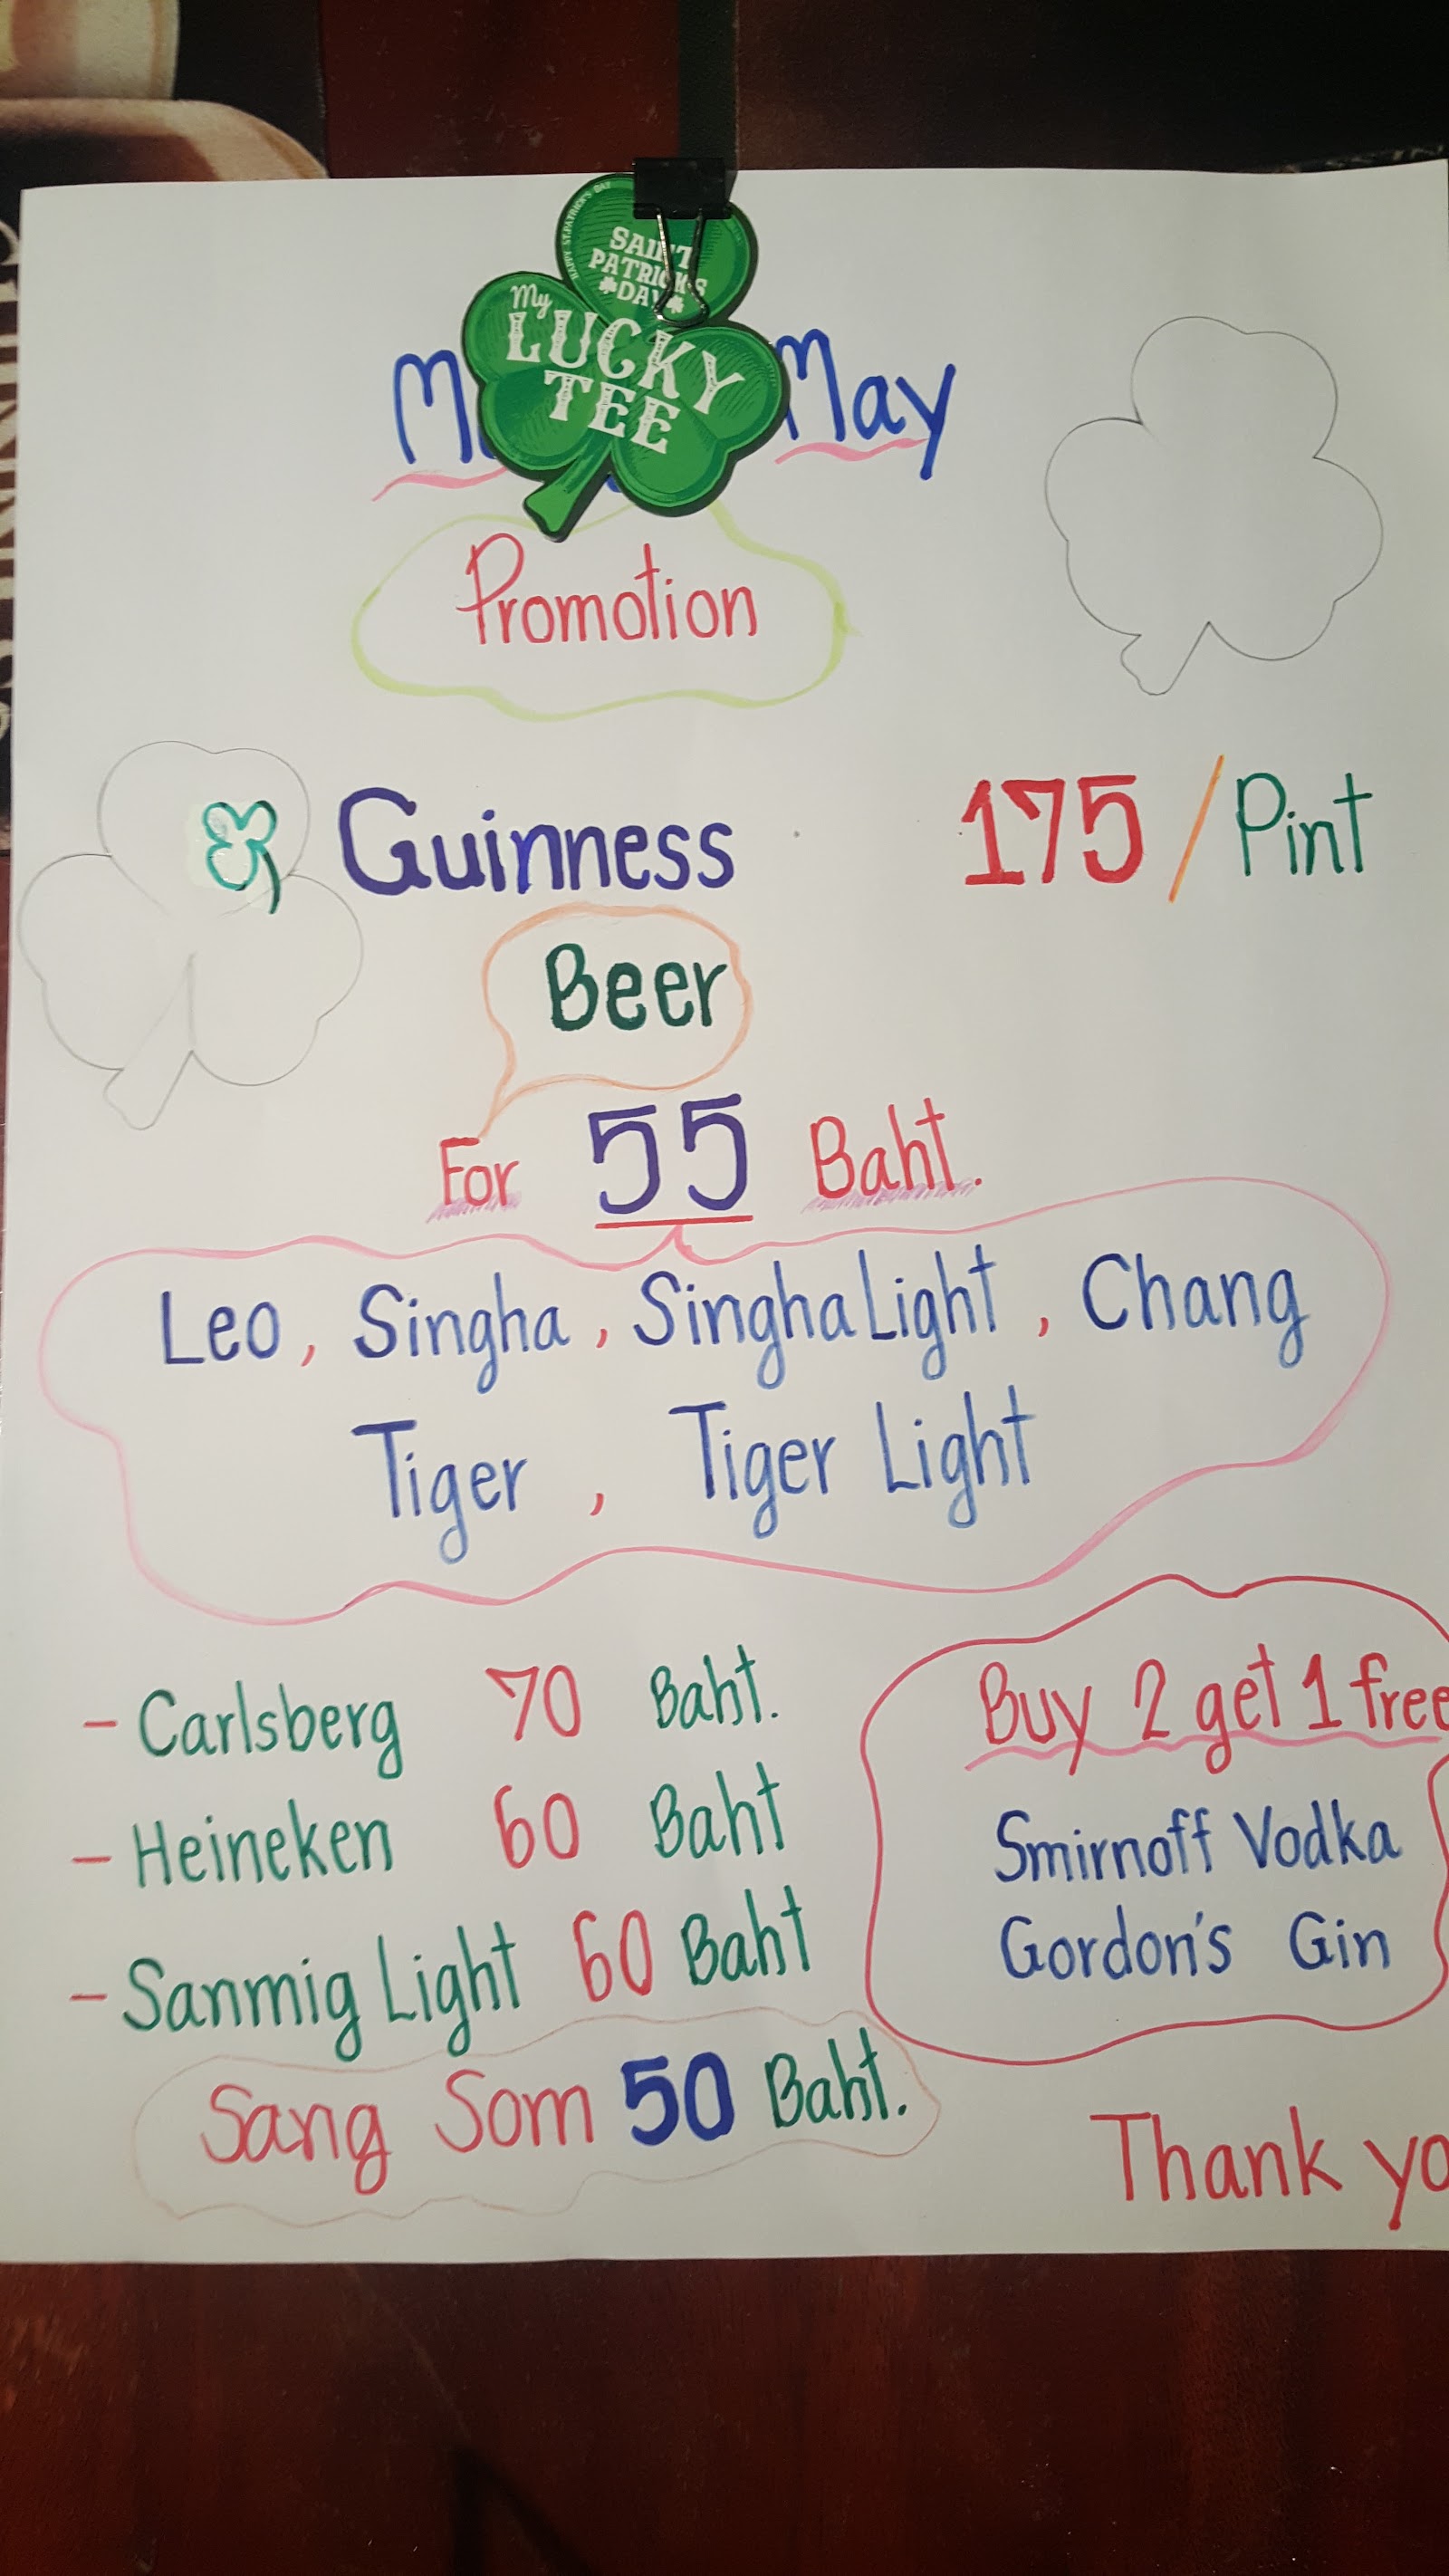 HAPPY ST.PATRICK'S DAY
SAINT
PATRICK'S
DAY
My
LUCKY
TEE
May
Promotion
Guinness 175/Pint
Beer
For 55 Baht.
Leo, Singha, Singha Light, Chang
Tiger, Tiger Light
- Carlsberg 70 Baht.
- Heineken 60 Baht
- Sanmig Light 60 Baht
Sang Som 50 Baht.
Buy 2 get 1 free
Smirnoff Vodka
Gordon's Gin
Thank yo